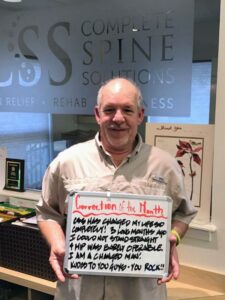 CSS
COMPLETE
SPINE
SOLUTIONS
RELIEF • REHAB • WELLNESS
Thank You
Correction of the Month
CSS HAS CHANGED MY LIFE SO
COMPLETELY! 3 LONG MONTHS AGO
I COULD NOT STAND STRAIGHT
& HIP WAS BARELY OPERABLE.
I AM A CHANGED MAN.
KUDOS TO YOU GUYS - YOU ROCK!!